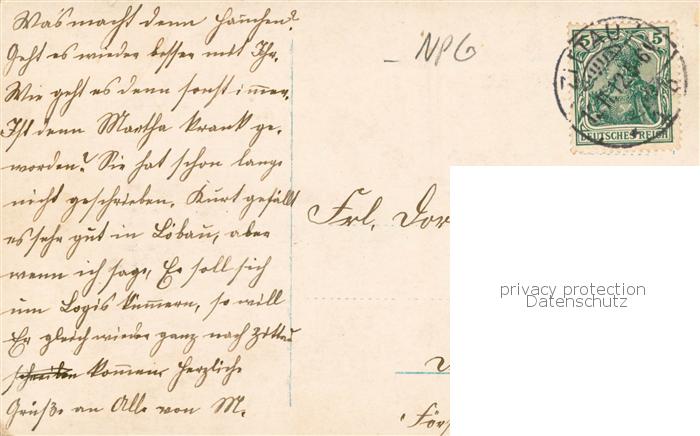 Was macht denn Hannchen?
Geht es wieder besser mit Ihr.
Wie geht es denn sonst immer.
Ist denn Martha krank ge-
worden? Sie hat schon lange
nicht geschrieben. Kurt gefällt
es sehr gut in Löbau, aber
wenn ich sage, Er soll sich
um Logis kümmern, so will
Er gleich wieder ganz nach Zittau
kommen. Herzliche
Grüße an Alle von M.
NPG
5
DEUTSCHES REICH
Frl. Dor
privacy protection
Datenschutz